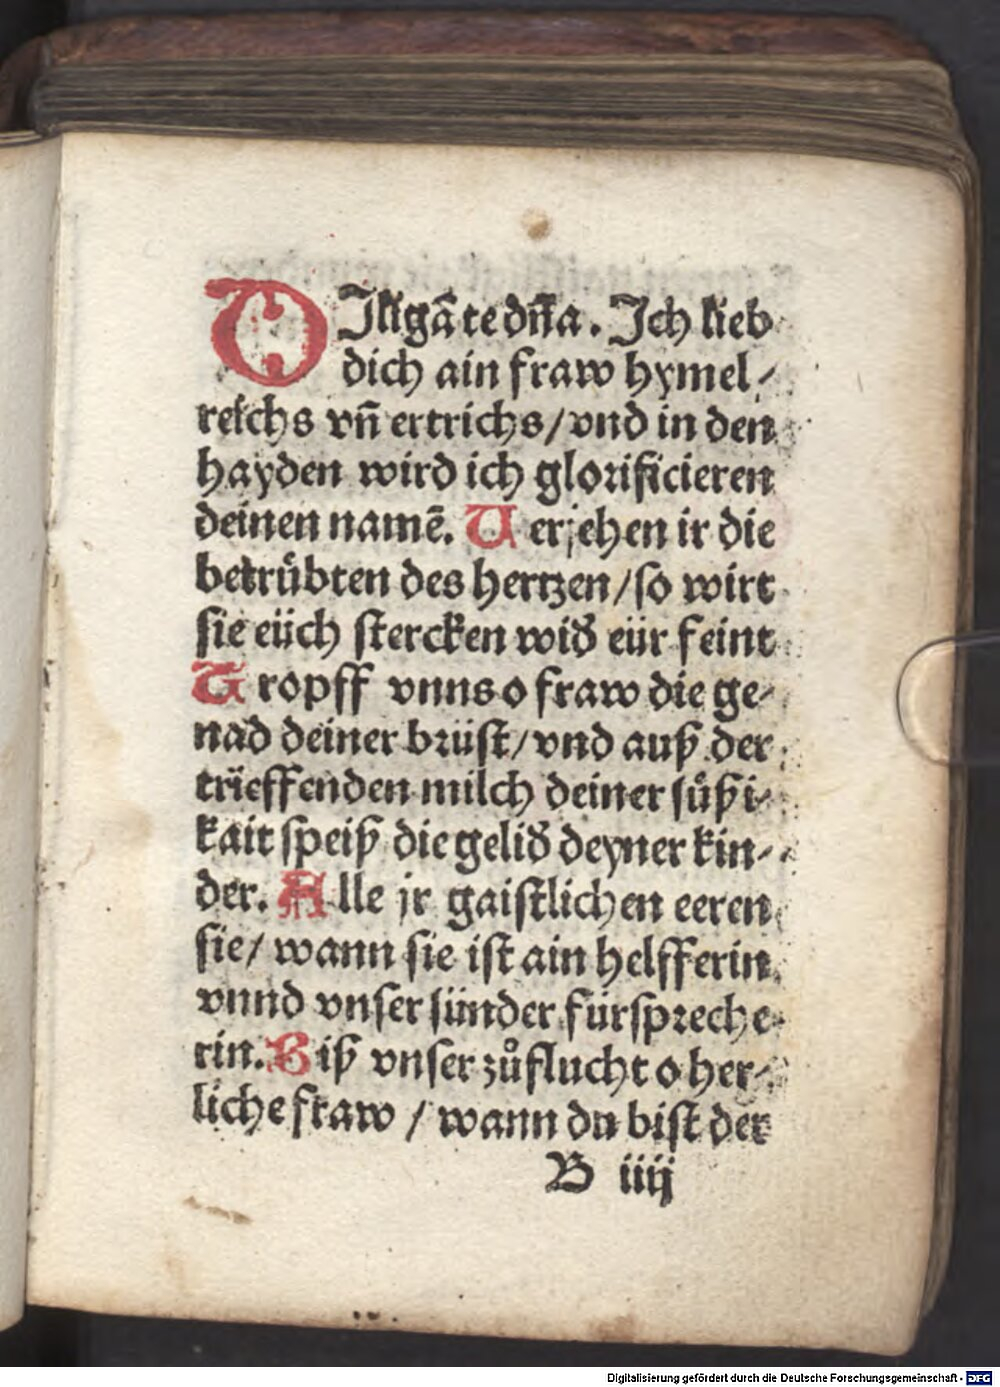 DIligā te dn̄a. Ich lieb
dich ain fraw hymel-
reichs vn̄ ertrichs/vnd in den
hayden wird ich glorificieren
deinen namē. Verjehen ir die
betrübten des hertzen/so wirt
sie eüch stercken wid̕ eür feint
Tropff vnns o fraw die ge-
nad deiner brüst/vnd auß der
trieffenden milch deiner süßi-
kait speiß die gelid̕ deyner kin-
der. Alle jr gaistlichen eeren
sie/ wann sie ist ain helfferin
vnnd vnser sünder fürspreche
rin. Biß vnser zůflucht o her-
liche fraw / wann du bist der
B iiij
Digitalisierung gefördert durch die Deutsche Forschungsgemeinschaft - DFG